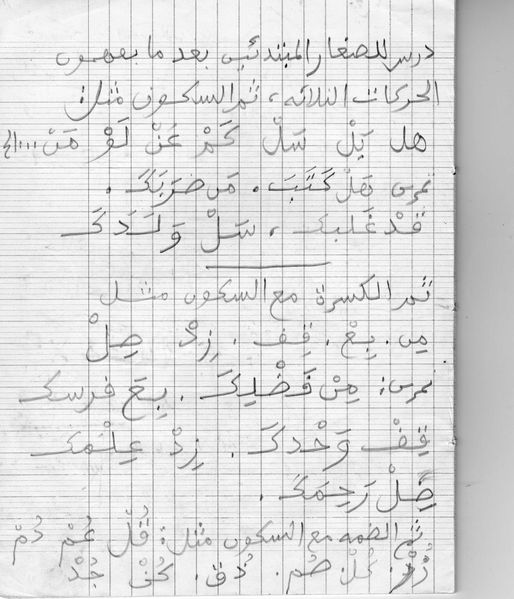 درس للصغار المبتدئين بعد ما يفهمون
الحركات الثلاثه، ثم السكون مثل:
هل بَلْ سَلْ كَمْ عَنْ لَوْ مَنْ ....الخ
تمرين هَلْ كَتَبَ. مَن ضَرَبَكَ.
قَدْ غَلَبكَ، سَلْ وَلَدَكَ
ثم الكسرة مع السكون مثل
مِن. بِعْ. قِف. زِدْ صِلْ
تمرين: مِنْ فَضْلِكَ. بِعَ فرسك
قِفْ وَحْدكَ. زِدْ عِلْمَك
صِلْ رَحِمَكَ.
ثم الضمه مع السكون مثل: قُلْ عُمْ دُمْ
زُرْ. كُلْ. صُم. ذُق. كُنْ جُدْ